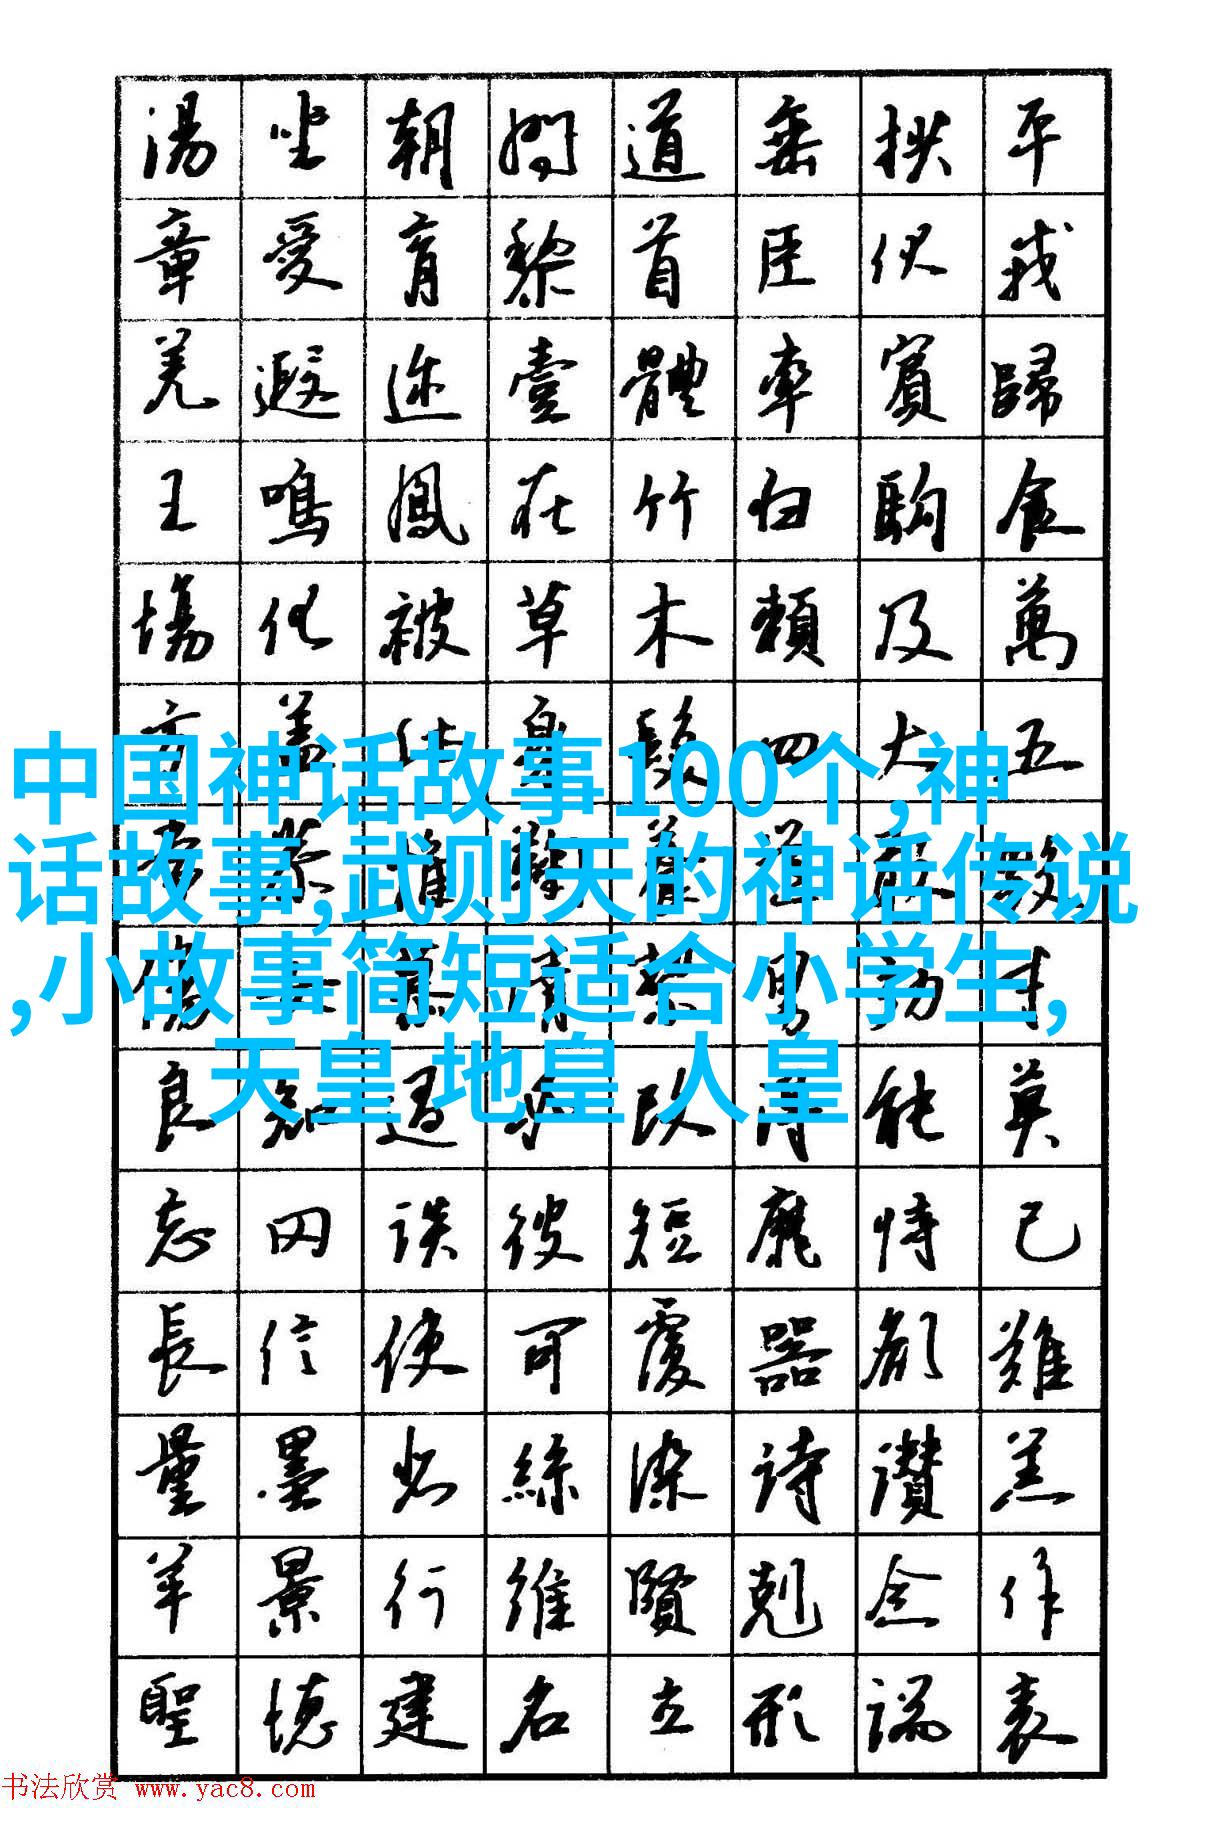 湯坐朝问道垂拱平
章愛育黎首臣伏戎
羌遐迩壹體率賓歸
王鳴鳳在竹白駒食
場化被草木賴及萬
方盖此身髮四大五
常恭惟鞠養豈敢
傷女慕貞絜男効才
良知過必改得能莫
忘罔谈彼短靡恃己
長信使可覆器欲難
量墨悲絲染诗讃羔
羊景行維賢剋念作
聖德建名立形端表
中国神话故事100个,神
话故事,武则天的神话传说
,小故事简短适合小学生,
天皇 地皇 人皇
书法欣赏 www.yac8.com